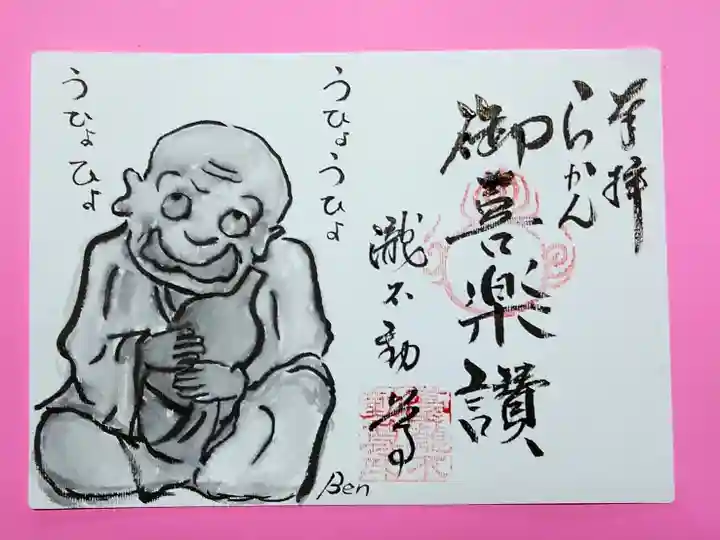 奉拝
らかん
御喜楽讃
瀧不動尊
うひょうひょ
うひょひょ
Ben